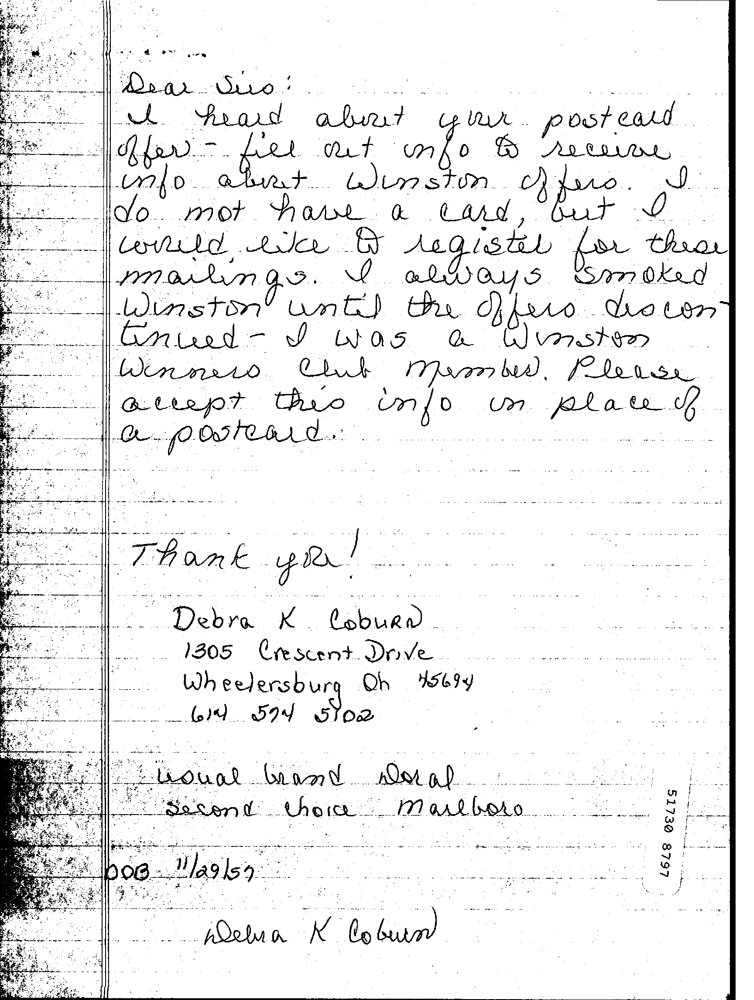 Dear Sirs:
I heard about your postcard
offer - fill out info to receive
info about Winston offers. I
do not have a card, but I
would like to register for these
mailings. I always smoked
Winston until the offers discon-
tinued - I was a Winston
Winners Club Member. Please
accept this info in place of
a postcard.
Thank you!
Debra K Coburn
1305 Crescent Drive
Wheelersburg Oh 45694
614 574 5102
usual brand Doral
second choice Marlboro
DOB 11/29/57
Debra K Coburn
51730 8797